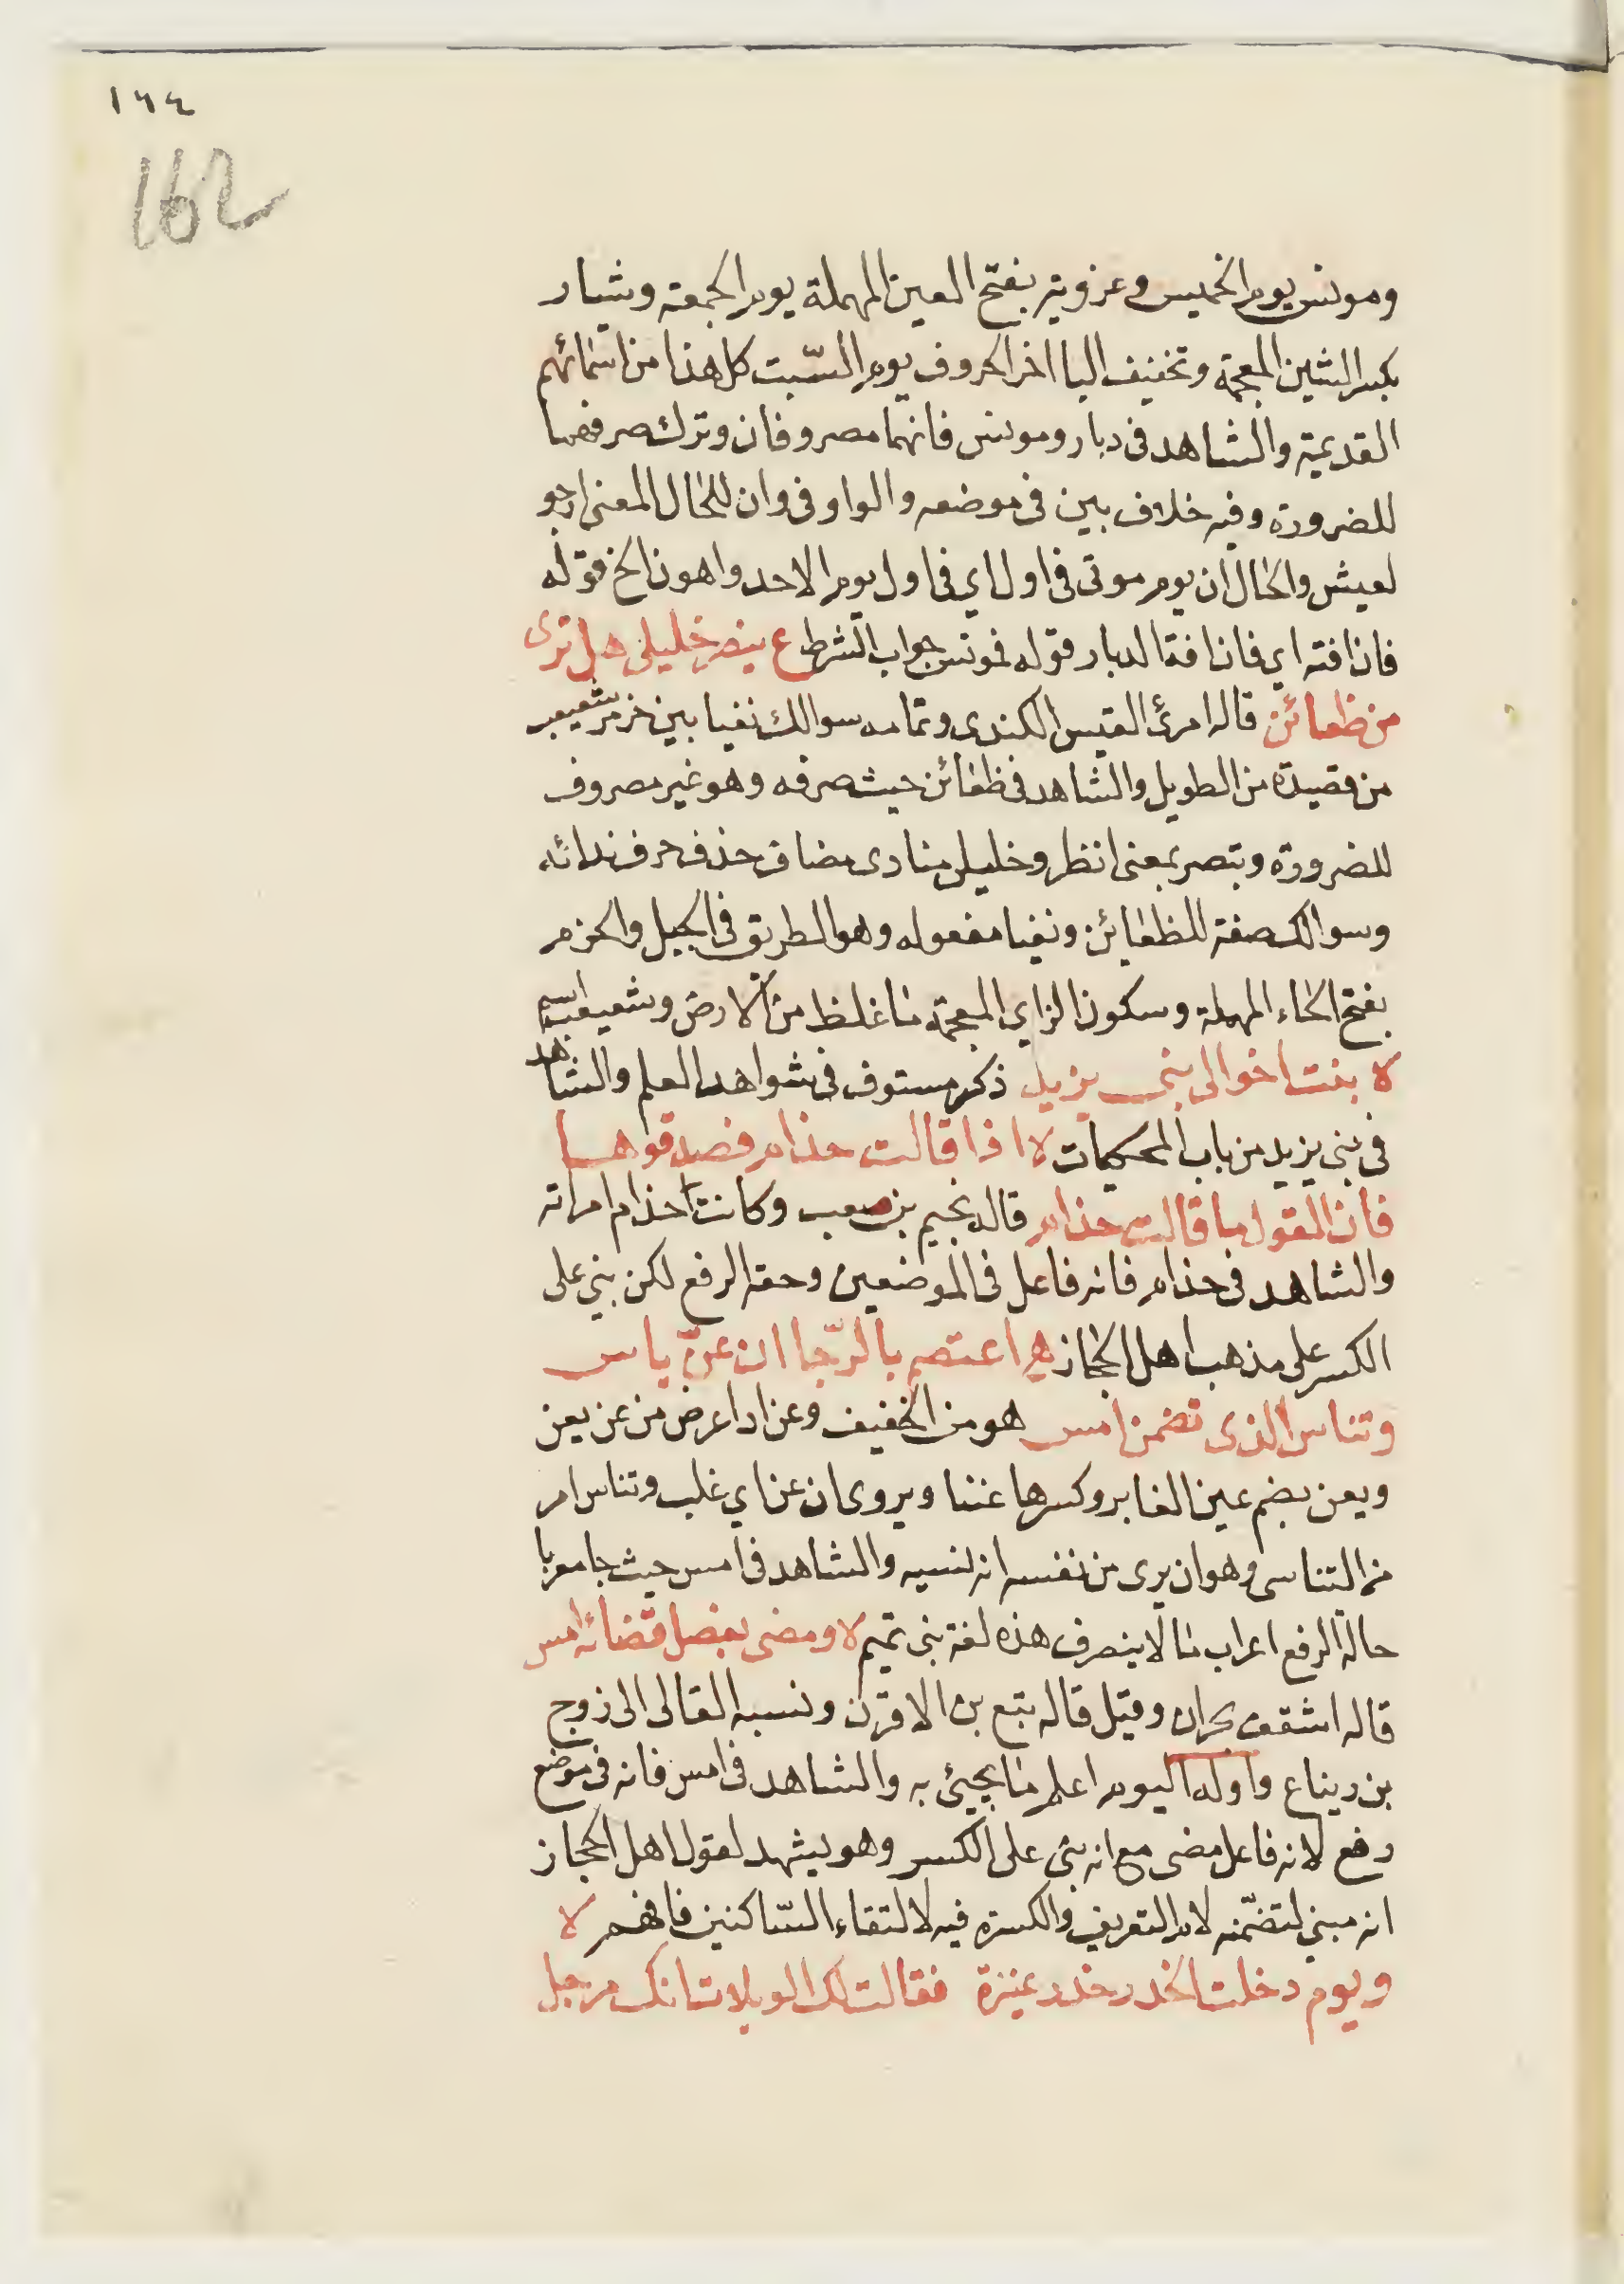 ١٦٤
162
ومونس يوم الخميس وعروبة بفتح العين المهملة يوم الجمعة وشيار
بكسر الشين المعجمة وتخفيف اليا اخر الحروف يوم السّبت كل هذا من اسمائهم
القديمة والشاهد فى دبار ومونس فانهما مصروفان وترك صرفهما
للضرورة وفيه خلاف بين فى موضعه والواو فى وان للحال المعنى ارجو
لعيش والحال ان يوم موتى فى اول اي فى اول يوم الاحد واهون الخ قوله
فان افته اي فان افة الدبار قوله فمونس جواب الشرط ع تبصر خليلى هل ترى
من ظعائن قاله امرئ القيس الكندى وتمامه سوالك نقبا بين حزمر شعبعب
من قصيدة من الطويل والشاهد فى ظعائن حيث صرفه وهو غير مصروف
للضرورة وتبصر بمعنى انظر وخليلى منادى مضاف حذف حرف ندائه
وسوالك صفة للظعائن ونقبا مفعوله وهو الطريق فى الجبل والحزم
بفتح الحاء المهملة وسكون الزاي المعجمة ما غلظ من الارض وشعبعب اسم
لا بنت اخوالى بنى يزيد ذكر مستوف فى شواهد العلم والشاهد
فى بنى يزيد من باب المحكيات لا اذا قالت حذام فصدقوها
فان القول ما قالت حذام قاله لجيم بن صعب وكانت حذام امراته
والشاهد فى حذام فانه فاعل فى الموضعين وحقه الرفع لكن بنى على
الكسر على مذهب اهل الحجاز هـ اعتصم بالرّجا ان عنّ ياس
وتناس الذى تضمن امس هو من الخفيف وعن اذا عرض من عن يعن
ويعن بضم عين الغابر وكسرها عننا ويروى ان عن اي غلب وتناس امر
من التناسى وهو ان يرى من نفسه انه نسيه والشاهد فى امس حيث جا معربا
حالة الرفع اعراب ما لا ينصرف هذه لغة بنى تميم لا ومضى بفصل قضائه امس
قاله اسقف نجران وقيل قاله تبع بن الاقرن ونسبه القالى الى زوج
بن ريناع واوله اليوم اعلم ما يجيئ به والشاهد فى امس فانه فى موضع
رفع لانه فاعل مضى مع انه بنى على الكسر وهو يشهد لقول اهل الحجاز
انه مبنى لتضمّنه لام التعريف والكسرة فيه لالتقاء السّاكنين فافهم لا
ويوم دخلت الخدر خدر عنيزة فقالت لك الويلات انك مرجل